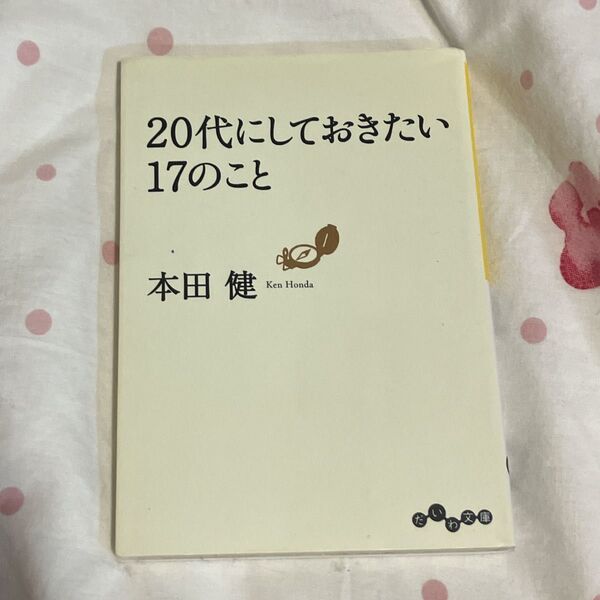 20代にしておきたい
17のこと
本田 健 Ken Honda
だいわ文庫